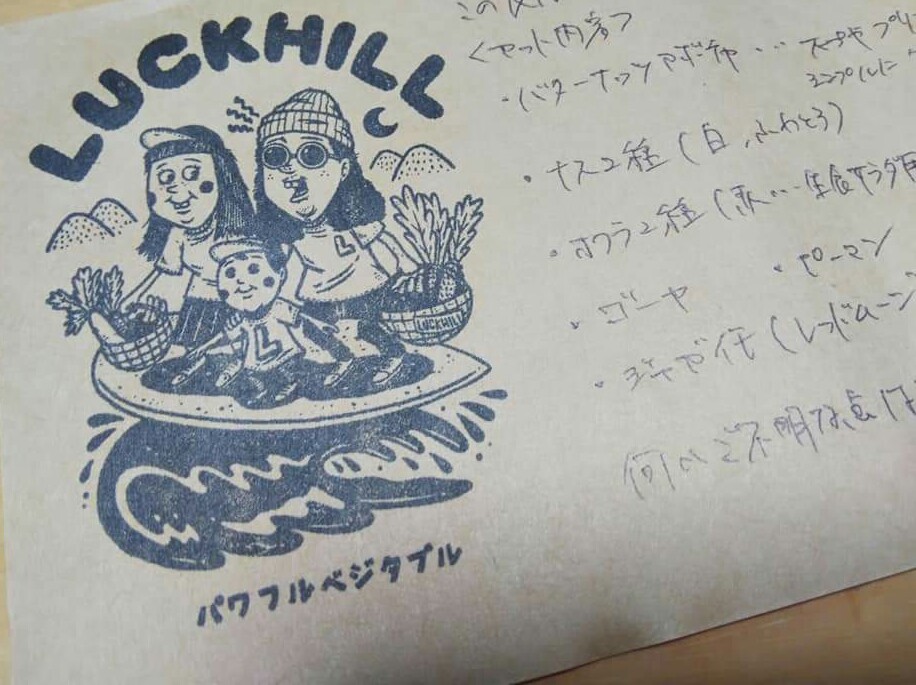 LUCKHILL
L
L
LUCKHILL
パワフルベジタブル
この
<セット内容>
・バターナッツカボチャ… スープやプリ
シンプルに
・ナス2種(白、ふわとろ)
・オクラ2種(赤…生食サラダ用
・ゴーヤ ・ピーマン
・ジャガ仔(レッドムーン
何かご不明な点は